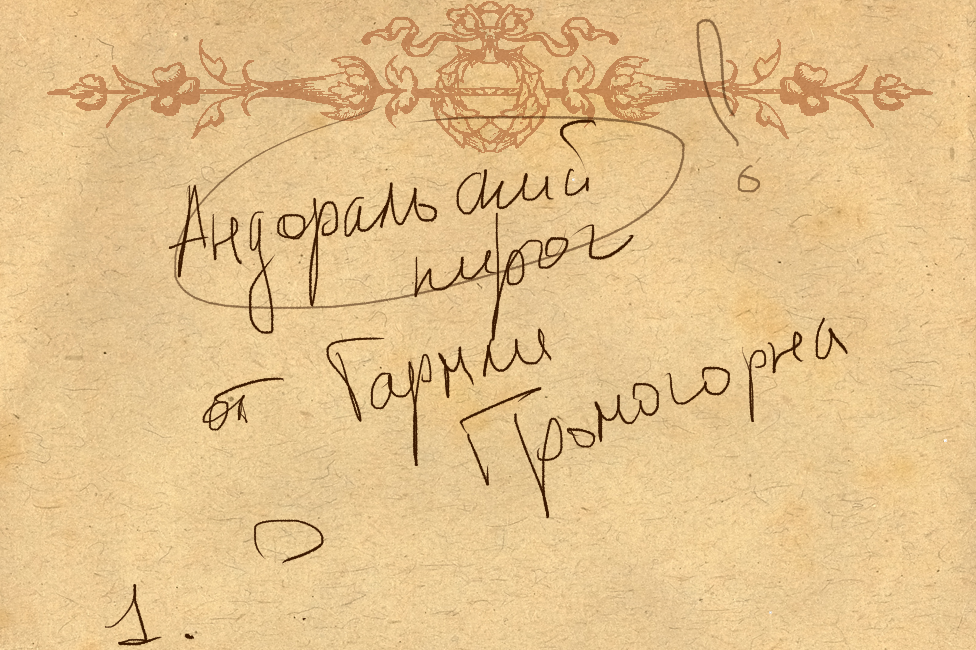 Андоральский
пирог
от Гармли
Громогорна
1.